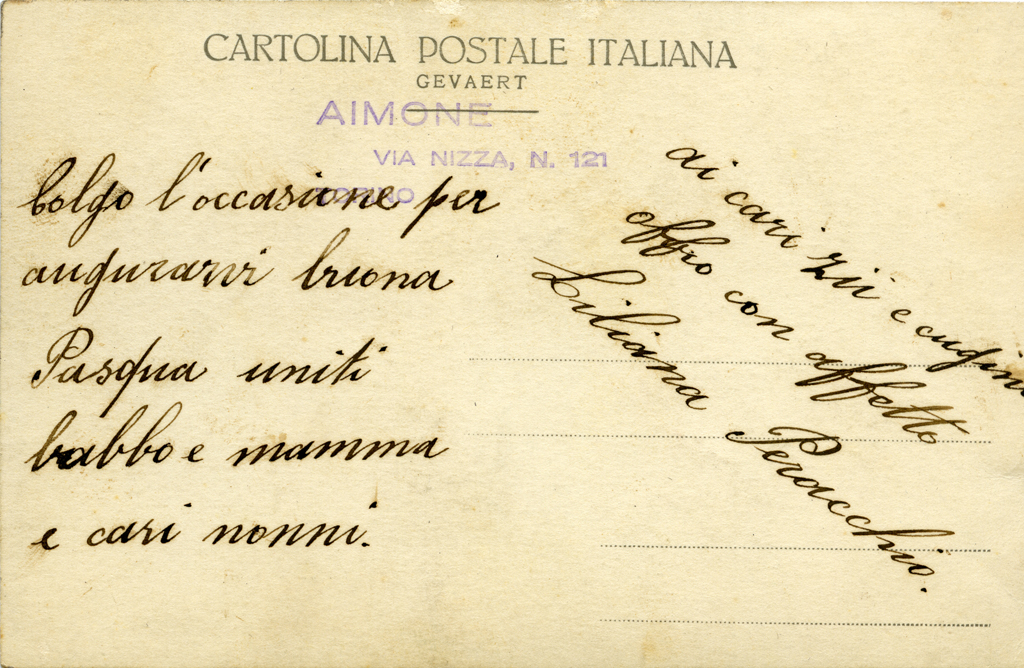 CARTOLINA POSTALE ITALIANA
GEVAERT
AIMONE
VIA NIZZA, N. 121
TORINO
Colgo l'occasione per
augurarvi buona
Pasqua uniti
babbo e mamma
e cari nonni.
ai cari zii e cugini
offro con affetto
Liliana Peracchio.